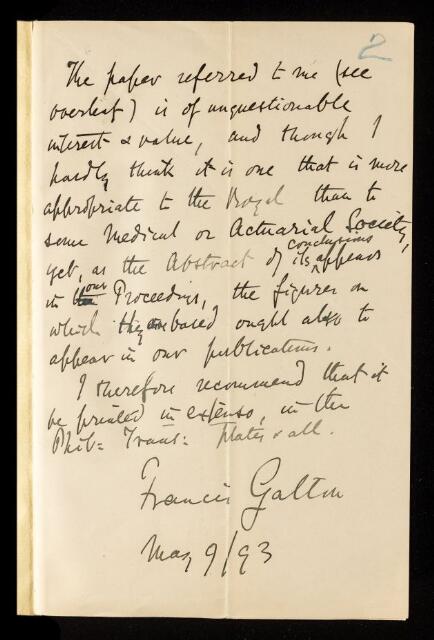 2
The paper referred to me (see
overleaf) is of unquestionable
interest & value, and though I
hardly think it is one that is more
appropriate to the Royal than to
some Medical or Actuarial Society,
yet, as the Abstract of its conclusions appears
in our Proceedings, the figures on
which they are based ought also to
appear in our publications.
I therefore recommend that it
be printed in extenso, in the
Phil: Trans: Plates & all.
Francis Galton
May 9/93